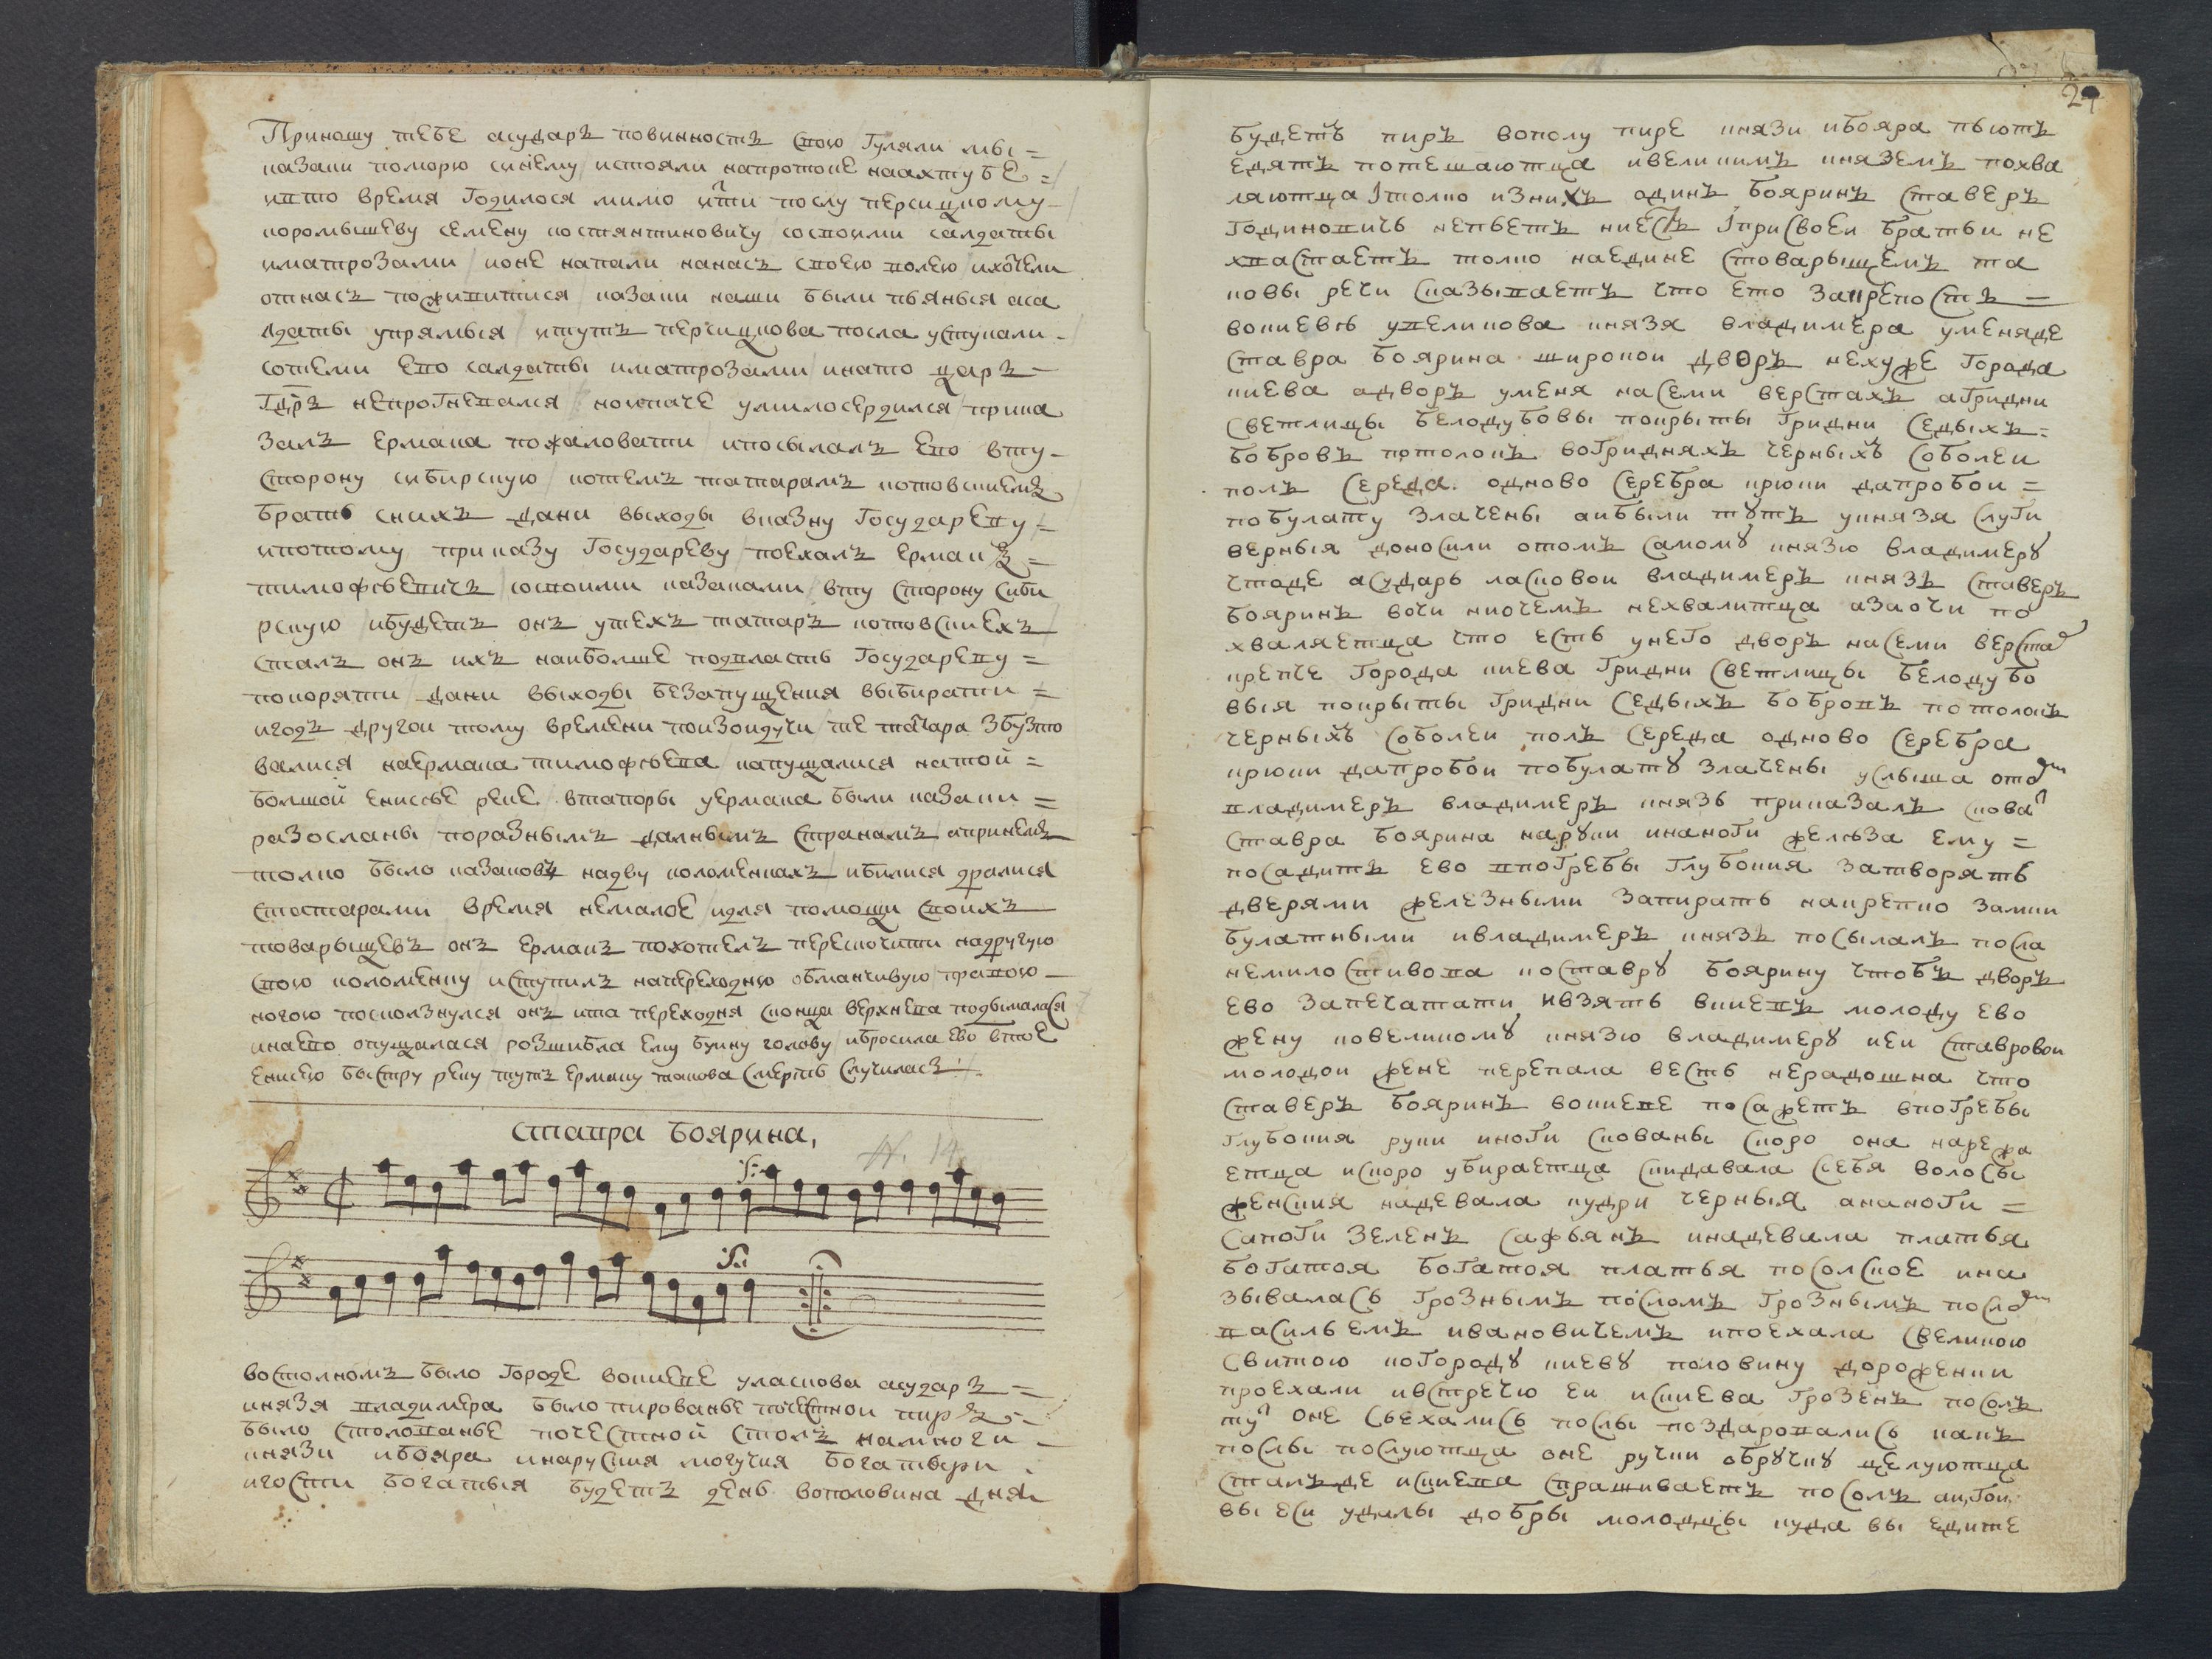 Приношу тебе асударь повинность свою Гуляли мы =
казаки поморю синему / истояли напротоке наахтубе =/
ивто время Годилося мимо итти послу персицкому –/
коромышеву семену костянтиновичу / сосвоими салдаты
иматрозами / ионе напали нанасъ своею волею / ихотели
отнасъ поживитися / казаки наши были пьяныя аса
лдаты упрямыя / итутъ персицкова посла устукали –
сотеми ево салдаты иматрозами / инато царъ –
Гдрь непрогневался / ноипаче умилосердился / прика
залъ ермака пожаловати / ипосылалъ ево вту –
сторону сибирскую / котемъ татарамъ котовскиемъ
брать снихъ дани выходы вказну Государеву / =
ипотому приказу Государеву / поехалъ ермакъ =
тимофѣевичъ / сосвоими казаками / вту сторону сиби
рскую / ибудетъ онъ утехъ татаръ котовскиехъ /
сталъ онъ ихъ наиболше подвласть Государеву =
покоряти / дани выходы безапущения выбирати =
игодъ другой тому времени поизоидучи / те татара взбузто
валися наермака тимофѣева / напущалися натой =
болшой енисѣе реке / втапоры уермака были казаки =
разосланы / поразнымъ далнымъ странамъ / апринемъ
толко было казаковъ надву коломенкахъ / ибилися дралися
стостарами время немалое / идля помощи своихъ
товарыщевъ онъ ермакъ похотелъ перескочити надругую
свою коломенку / иступилъ напереходню обманчивую / правою –
ногою поскользнулся онъ ита переходня сконца верхнева подымалася
инаево опущалася / розшибла ему буйну голову / ибросила ево втое
енисею быстру реку / тутъ ермаку такова смерть случиласъ /.
Ставра боярина,
N. 14.
востолномъ было Городе вокиеве уласкова асударъ =
князя владимера было пированье почестнои пиръ –
было столованье почестной столъ намноги –
князи ибояра инаруския могучия богатыри –
игости богатыя будетъ день вополовина дня
29
будетъ пиръ вополу пире князи ибояра пьютъ
едятъ потешаютца ивеликимъ княземъ похва
ляютца Iтолко изнихъ одинъ бояринъ ставеръ
Годиновичь непьетъ ниестъ Iприсвоеи братьи не
хвастаетъ толко наедине стоварыщемъ та
ковы речи сказываетъ что ето закрепость =
вокиевѣ увеликова князя владимера уменяде
ставра боярина широкои дворъ нехуже Города
киева адворъ уменя насеми верстахъ аГридни
светлицы белодубовы покрыты Гридни седыхъ =
бобровъ потолокъ воГридняхъ черныхъ соболеи
полъ середа одново серебра крюки дапробои =
побулату злачены аибыли тутъ укнязя слуги
верныя доносили отомъ самому князю владимеру
чтоде асударь ласковои владимеръ князь ставеръ
бояринъ вочи ниочемъ нехвалитца азаочи по
хваляетца что есть унего дворъ насеми верста
крепче Города киева Гридни светлицы белодубо
выя покрыты Гридни седыхъ бобровъ потолокъ
черныхъ соболеи полъ середа одново серебра
крюки дапробои побулату злачены услыша ото
владимеръ владимеръ князь приказалъ скова
ставра боярина наруки инаноги желѣза ему =
посадить ево впогребы Глубокия затворять
дверями железными запирать накрепко замки
булатными ивладимеръ князь посылалъ посла
немилостивова коставру боярину чтобъ дворъ
ево запечатати ивзять вкиевъ молоду ево
жену ковеликому князю владимеру кеи ставровои
молодои жене перепала весть нерадошна что
ставеръ бояринъ вокиеве посаженъ впогребы
Глубокия руки иноги скованы скоро она наряжа
етца искоро убираетца скидавала себя волосы
женския надевала кудри черныя аnаноги =
сапоги зеленъ сафьянъ инадевала платья
богатоя богатоя платья посолское ина
зывалась Грознымъ посломъ Грознымъ посло
васильемъ ивановичемъ ипоехала свеликою
свитою когороду киеву половину дороженки
проехали ивстречю еи искиева Грозенъ посолъ
ту оне съехались послы поздаровались какъ
послы послуютца оне ручки обручку целуютца
сталъде искиева спрашиваетъ посолъ аиГои
вы еси удалы добры молодцы куда вы едите